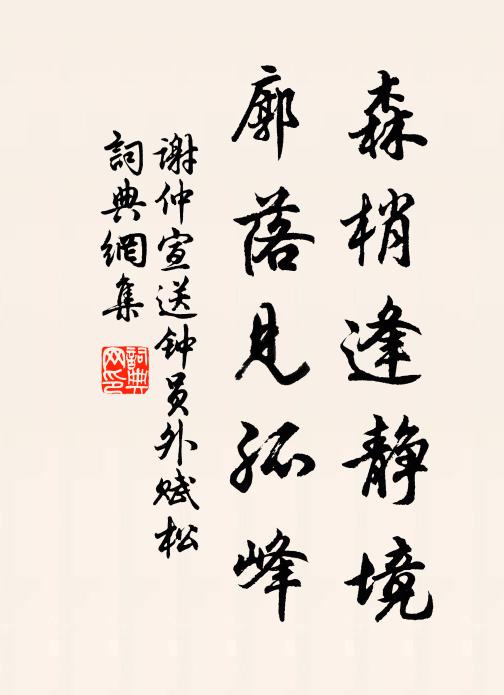 森梢逢静境
廓落見孤峰
谢仲宣送钟员外赋松
詞典網集
詞典网印